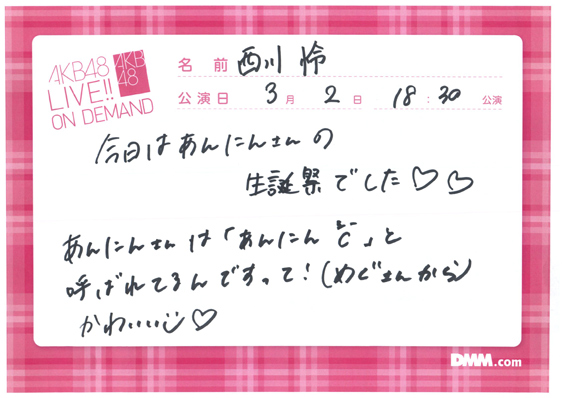 AKB48
LIVE!!
ON DEMAND
AKB
48
名前 西川 怜
公演日 3月 2日 18:30 公演
今日はあんにんさんの
生誕祭でした♡♡
あんにんさんは「あんにんC」と
呼ばれてるんですって!(めぐさんから)
かわいい♡
DMM.com